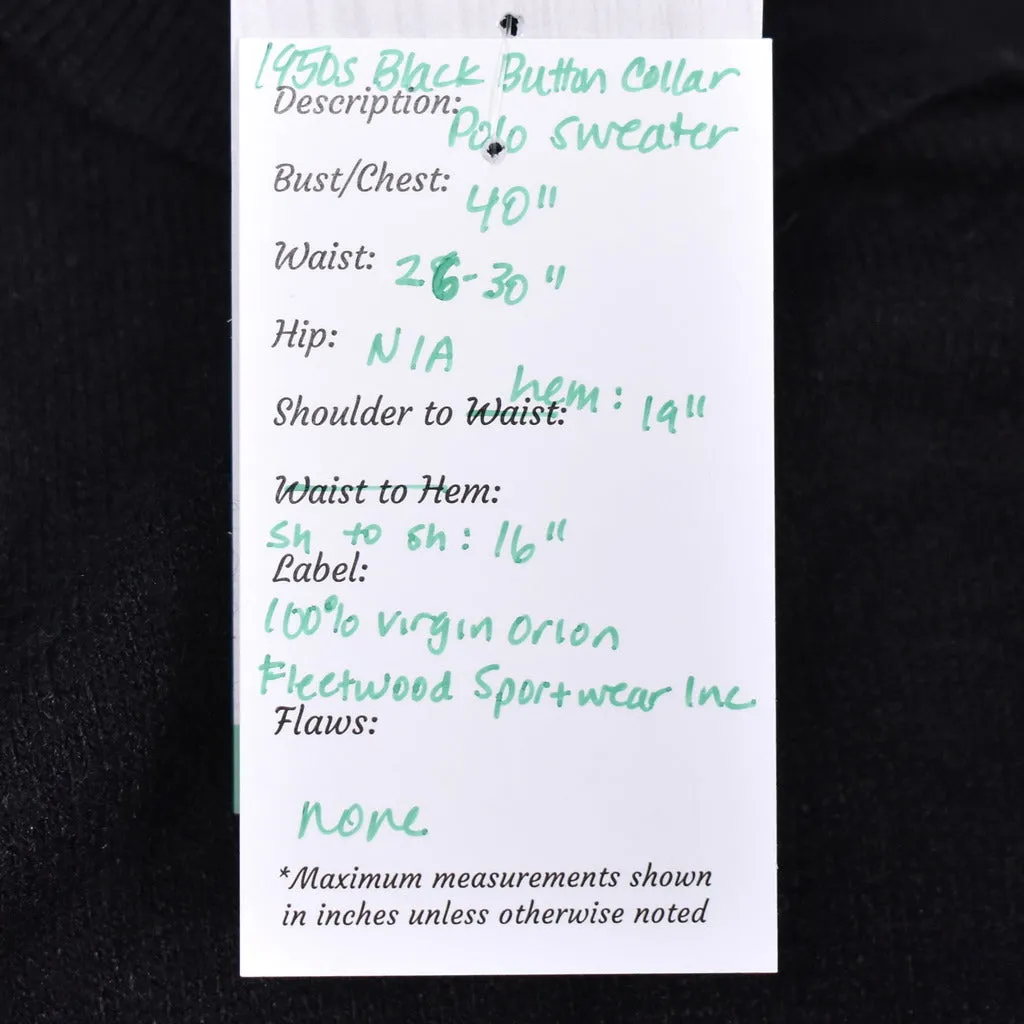 1950s Black Button Collar
Description:
Polo sweater
Bust/Chest: 40"
Waist: 26-30"
Hip: N/A
hem: 19"
Shoulder to Waist:
Waist to Hem:
sh to sh: 16"
Label:
100% virgin orlon
Fleetwood Sportwear Inc.
Flaws:
none
*Maximum measurements shown
in inches unless otherwise noted